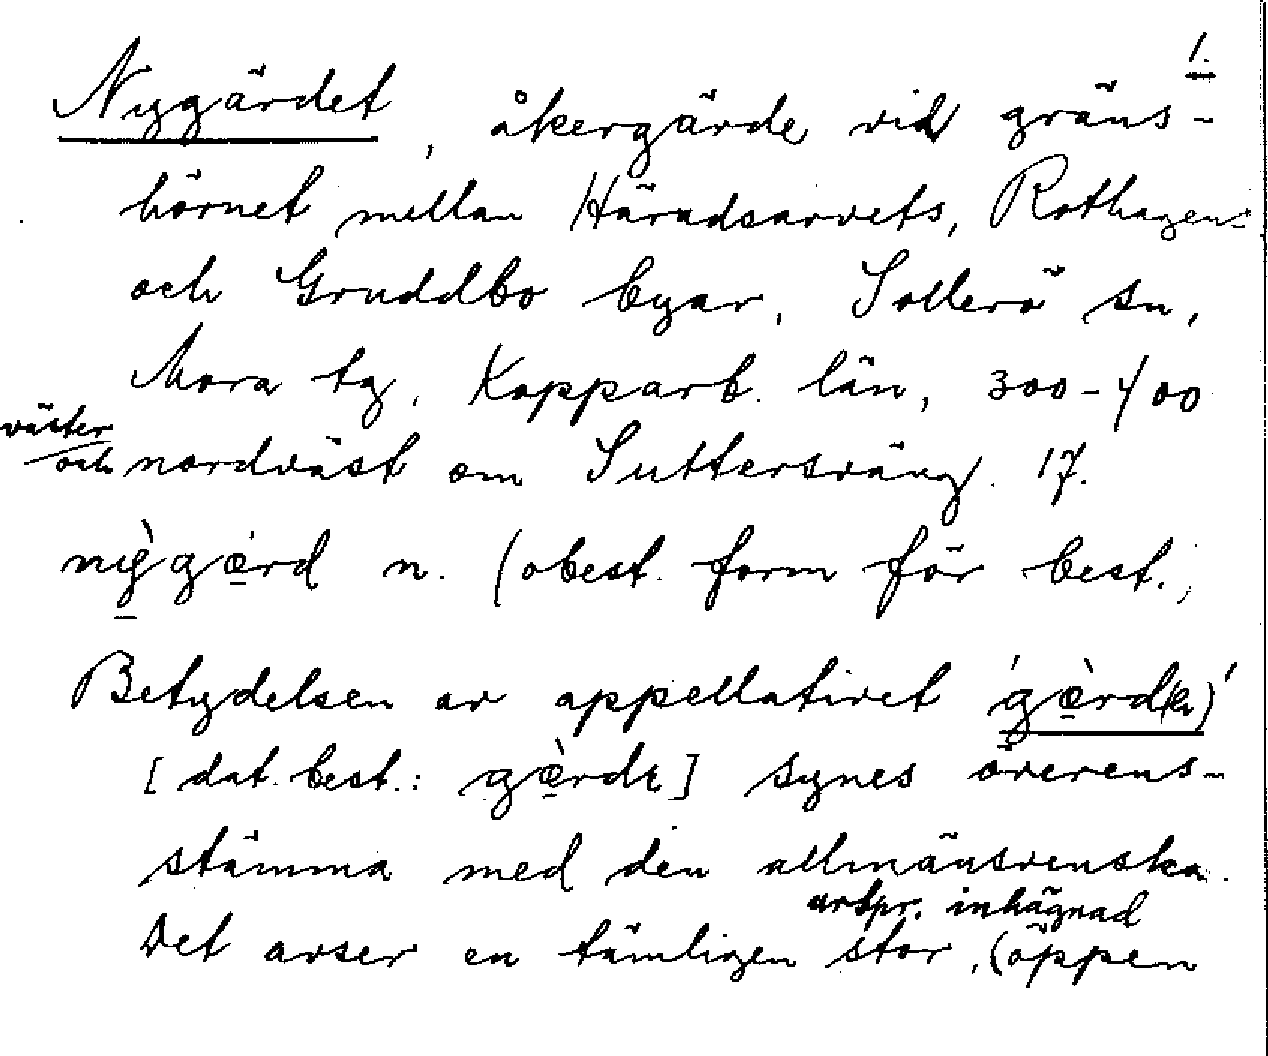 1.
Nygärdet, åkergärde vid gräns-
hörnet mellan Häradsarvets, Rothagens
och Gruddbo byar, Sollerö sn,
Mora tg, Kopparb. län, 300-400
väster
och nordväst om Suttersväng. 17.
nỳgæ̀rd n. (obest. form för best.,
Betydelsen av appellativet 'gæ̀rd(ɐ)'
[dat. best.: gæ̀rdɩ] synes överens-
stämma med den allmänsvenska.
urspr. inhägnad
Det avser en tämligen stor, (öppen